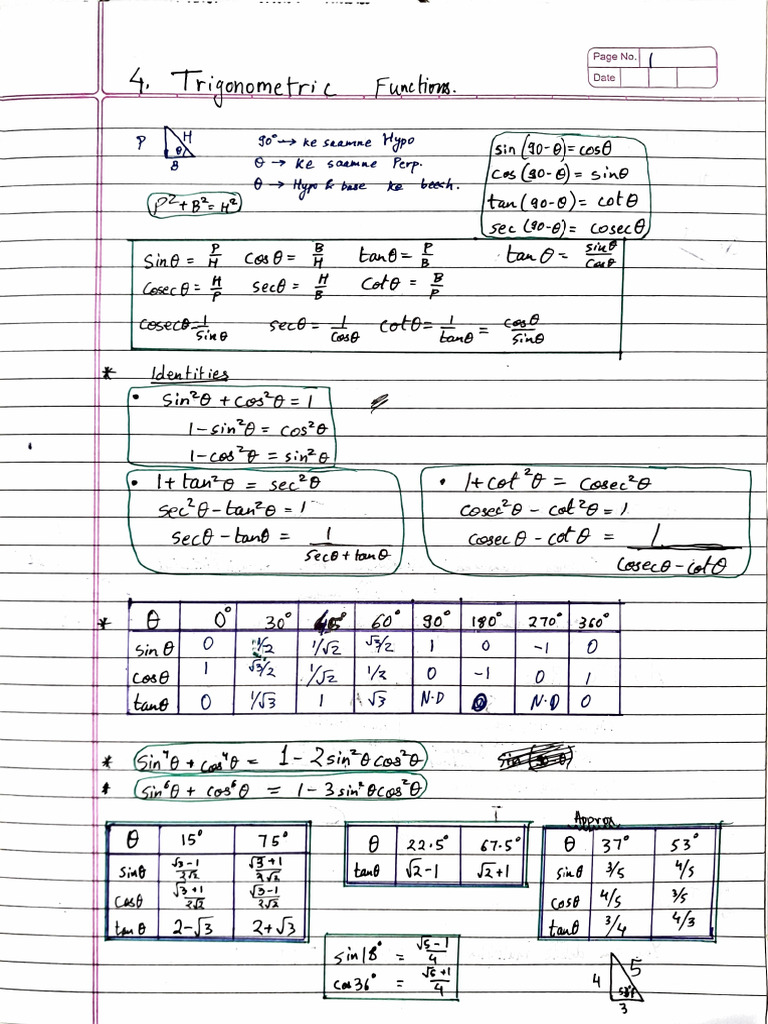 Page No. 1
Date
4. Trigonometric Functions.
P H θ B
90° → ke saamne Hypo
θ → ke saamne Perp.
θ → Hypo & base ke beech.
P²+B²=H²
sin (90-θ)=cosθ
cos (90-θ) = sinθ
tan (90-θ) = cotθ
sec (90-θ)= cosecθ
Sinθ = P/H cosθ = B/H tanθ = P/B tanθ = sinθ/cosθ
Cosecθ = H/P secθ = H/B Cotθ = B/P
cosecθ=1/sinθ secθ = 1/cosθ cotθ = 1/tanθ = cosθ/sinθ
* Identities
• Sin²θ + cos²θ = 1
1-sin²θ = cos²θ
1-cos²θ = sin²θ
• 1+ tan²θ = sec²θ
sec²θ-tan²θ = 1
secθ-tanθ = 1/secθ+tanθ
• 1+cot²θ = cosec²θ
cosec²θ - cot²θ = 1
cosecθ - cotθ = 1/cosecθ-cotθ
* θ 0° 30° 45° 60° 90° 180° 270° 360°
sinθ 0 1/2 1/√2 √3/2 1 0 -1 0
cosθ 1 √3/2 1/√2 1/2 0 -1 0 1
tanθ 0 1/√3 1 √3 N·D 0 N·D 0
* Sin⁴θ + cos⁴θ = 1-2sin²θcos²θ
* Sin⁶θ + cos⁶θ = 1-3sin²θcos²θ
θ 15° 75°
sinθ √3-1/2√2 √3+1/2√2
cosθ √3+1/2√2 √3-1/2√2
tanθ 2-√3 2+√3
θ 22.5° 67.5°
tanθ √2-1 √2+1
Approx
θ 37° 53°
sinθ 3/5 4/5
cosθ 4/5 3/5
tanθ 3/4 4/3
sin18° = √5-1/4
cos36° = √5+1/4
4 5 53° 3